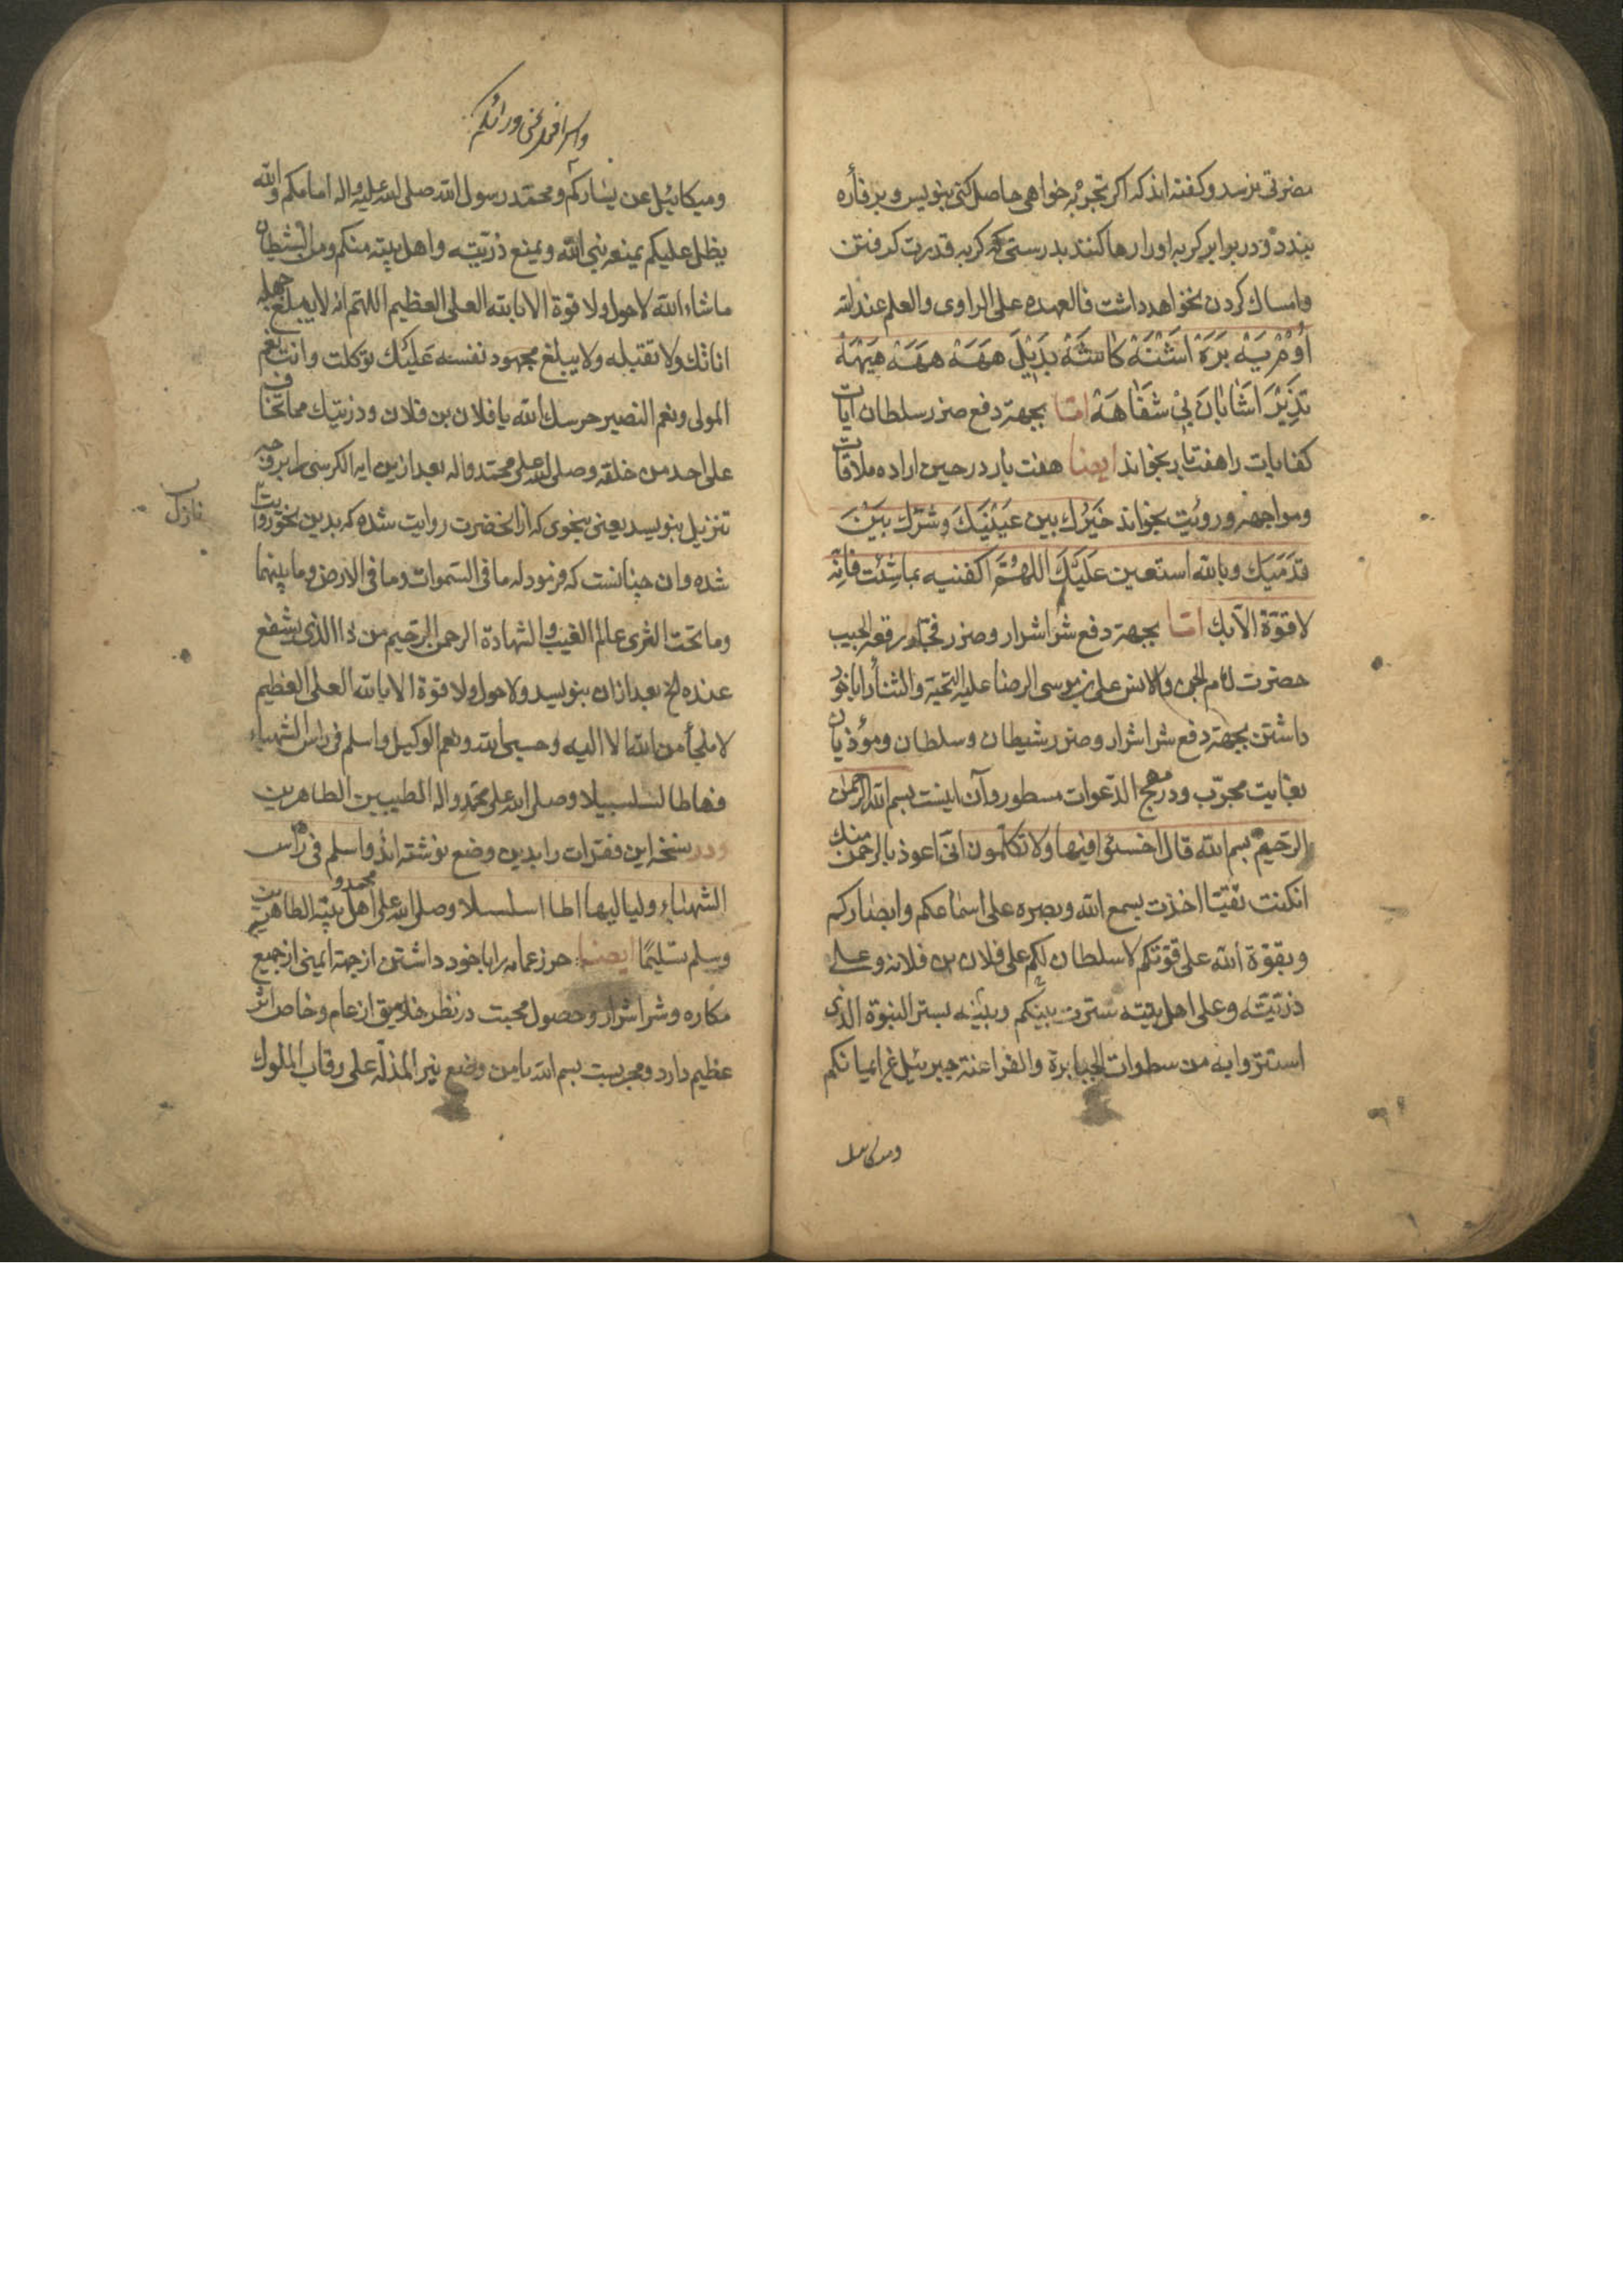 مضرتی نرسد و کفته اند که اکر تجربه خواهی حاصل کنی بنویس و بر فأره
بندد و در برابر کربه او را رها کنند بدرستی که کربه قدرت کرفتن
و امساك کردن نخواهد داشت فالعهده علی الراوی و العلم عند الله
بجهة دفع ضرر سلطان آیات
کفایات را هفت بار بخواند ایضا هفت بار در حین اراده ملاقات
و مواجهه و رویت بخواند خَیْرُك بین عَیْنَیَكَ وَ شَرّك بَیْنَ
قَدَمَیَك و بالله استعین عَلَیَْكَ اللهُمَّ اکفنیه بماشِئت فانه
لا قوّة الّا بك امّا بجهة دفع شر اشرار و ضرر رقعة الجیب
حضرت امام الجن والانس علی بن موسی الرضا علیه التحیة والثنأ را با خود
داشتن بجهة دفع شر اشرار و ضرر شیطان و سلطان و مؤذیان
بغایت مجرّب و در مهج الدّعوات مسطور و آن اینست بسم الله الرحمن
الرّحیم بسم الله قال اخسئوا فیها و لا تکلمون انی اعوذ بالرحمن منك
انکنت تقیّا اخذت بسمع الله وبصره علی اسماعکم وابصارکم
وبقوّة الله علی قوّتکم لا سلطان لکم علی فلان بن فلانه وعلی
ذرّیّته وعلی اهل بیته سترت بینکم وبینه بستر النبوة الذی
استتروا به من سطوات الجبابرة والفراعنة جبرئیل عن ایمانکم
ومیکائیل
واسرافیل عن ورائکم
ومیکائیل عن یسارکم ومحمّد رسول الله صلی الله علیه واله امامکم والله
یظل علیکم بمنعه نبی الله وبمنع ذرّیّته واهل بیته منکم ومن الشیطان
ماشاء الله لاحول ولا قوة الا بالله العلی العظیم اللهم انه لا یبلغ جهله
اناتك ولا تقتبله ولا یبلغ مجهود نفسه عَلَیْكَ توکلت وانت نعم
المولی ونعم النصیر حرسك الله یا فلان بن فلان وذریتك مما تخاف
علی احد من خلقه وصلی الله علی محمّد واله بعد ازین ایه الکرسی را بر وجه
تنزیل بنویسد یعنی بنحوی که از انحضرت روایت شده که بدین نحو روایت
نازل
شده و ان چنانست که فرمود له ما فی السّموات وما فی الارض وما بینهما
وما تحت الثری عالم الغیب والشهادة الرحمن الرّحیم من ذا الذی یشفع
عنده الخ بعد ازان بنویسد ولا حول ولا قوة الا بالله العلی العظیم
لا ملجأ من الله الا الیه وحسبی الله ونعم الوکیل واسلم فی راس الشهباء
فیها طالسلسبیلا وصلی الله علی محمّد واله الطیبین الطاهرین
ودر نسخه این فقرات را بدین وضع نوشته اند واسلم فی رأس
الشهباء ولیالیها طا اسلسلا وصلی الله علی محمد و اهل بیته الطاهرین
وسلم تسلیمًا ایضا حرز یمانی را با خود داشتن از جهة ایمنی از جمیع
مکاره و شر اشرار و حصول محبت در نظر خلایق از عام و خاص اثر
عظیم دارد و مجربست بسم الله یا من وضع نیر المذلّة علی رقاب الملوك